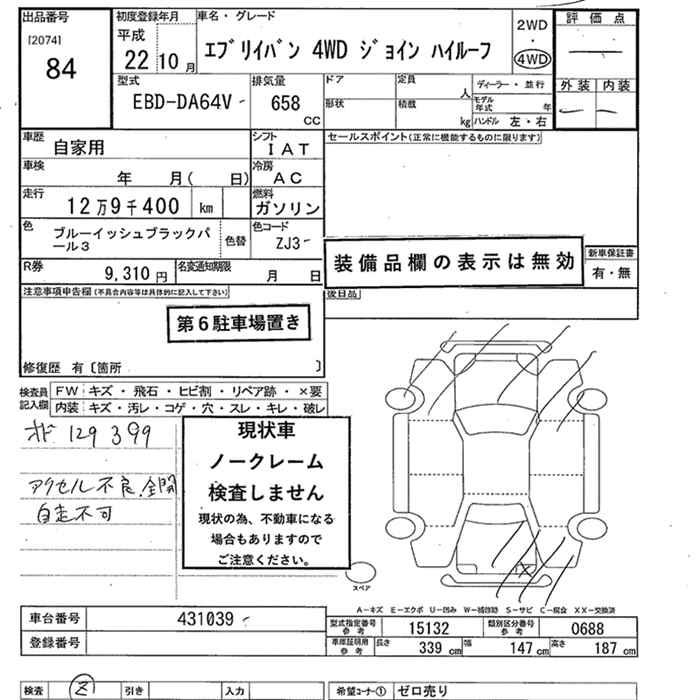 出品番号 初度登録年月 車名・グレード 2WD 評価点
[2074] 平成
84 22年 10月 エブリイバン 4WD ジョイン ハイルーフ ・ 4WD
型式 排気量 ドア 定員 人 ディーラー・並行 外装 内装
EBD-DA64V 658 CC 形状 積載 kg モデル年式 年
ハンドル 左・右
車歴 自家用 シフト IAT セールスポイント(正常に機能するものに限ります)
車検 年 月( 日) 冷房 AC
走行 12万9千400 km 燃料 ガソリン
色 ブルーイッシュブラックパール3 色替 色コード ZJ3
装備品欄の表示は無効 新車保証書
有・無
R券 9,310円 名変通知期限 月 日
注意事項申告欄(不具合内容等は具体的に記入して下さい) 後日品
第6駐車場置き
修復歴 有〔箇所 〕
検査員記入欄 FW キズ・飛石・ヒビ割・リペア跡・×要
内装 キズ・汚レ・コゲ・穴・スレ・キレ・破レ
オド 129399
アクセル不良,全開
自走不可
現状車
ノークレーム
検査しません
現状の為、不動車になる
場合もありますので
ご注意ください。
スペア
A-キズ E-エクボ U-凹み W-補修跡 S-サビ C-腐食 XX-交換済
車台番号 431039 型式指定番号参考 15132 類別区分番号参考 0688
登録番号 車庫証明用参考 長さ 339cm 幅 147cm 高さ 187cm
検査 引き 入力 希望コーナー① ゼロ売り